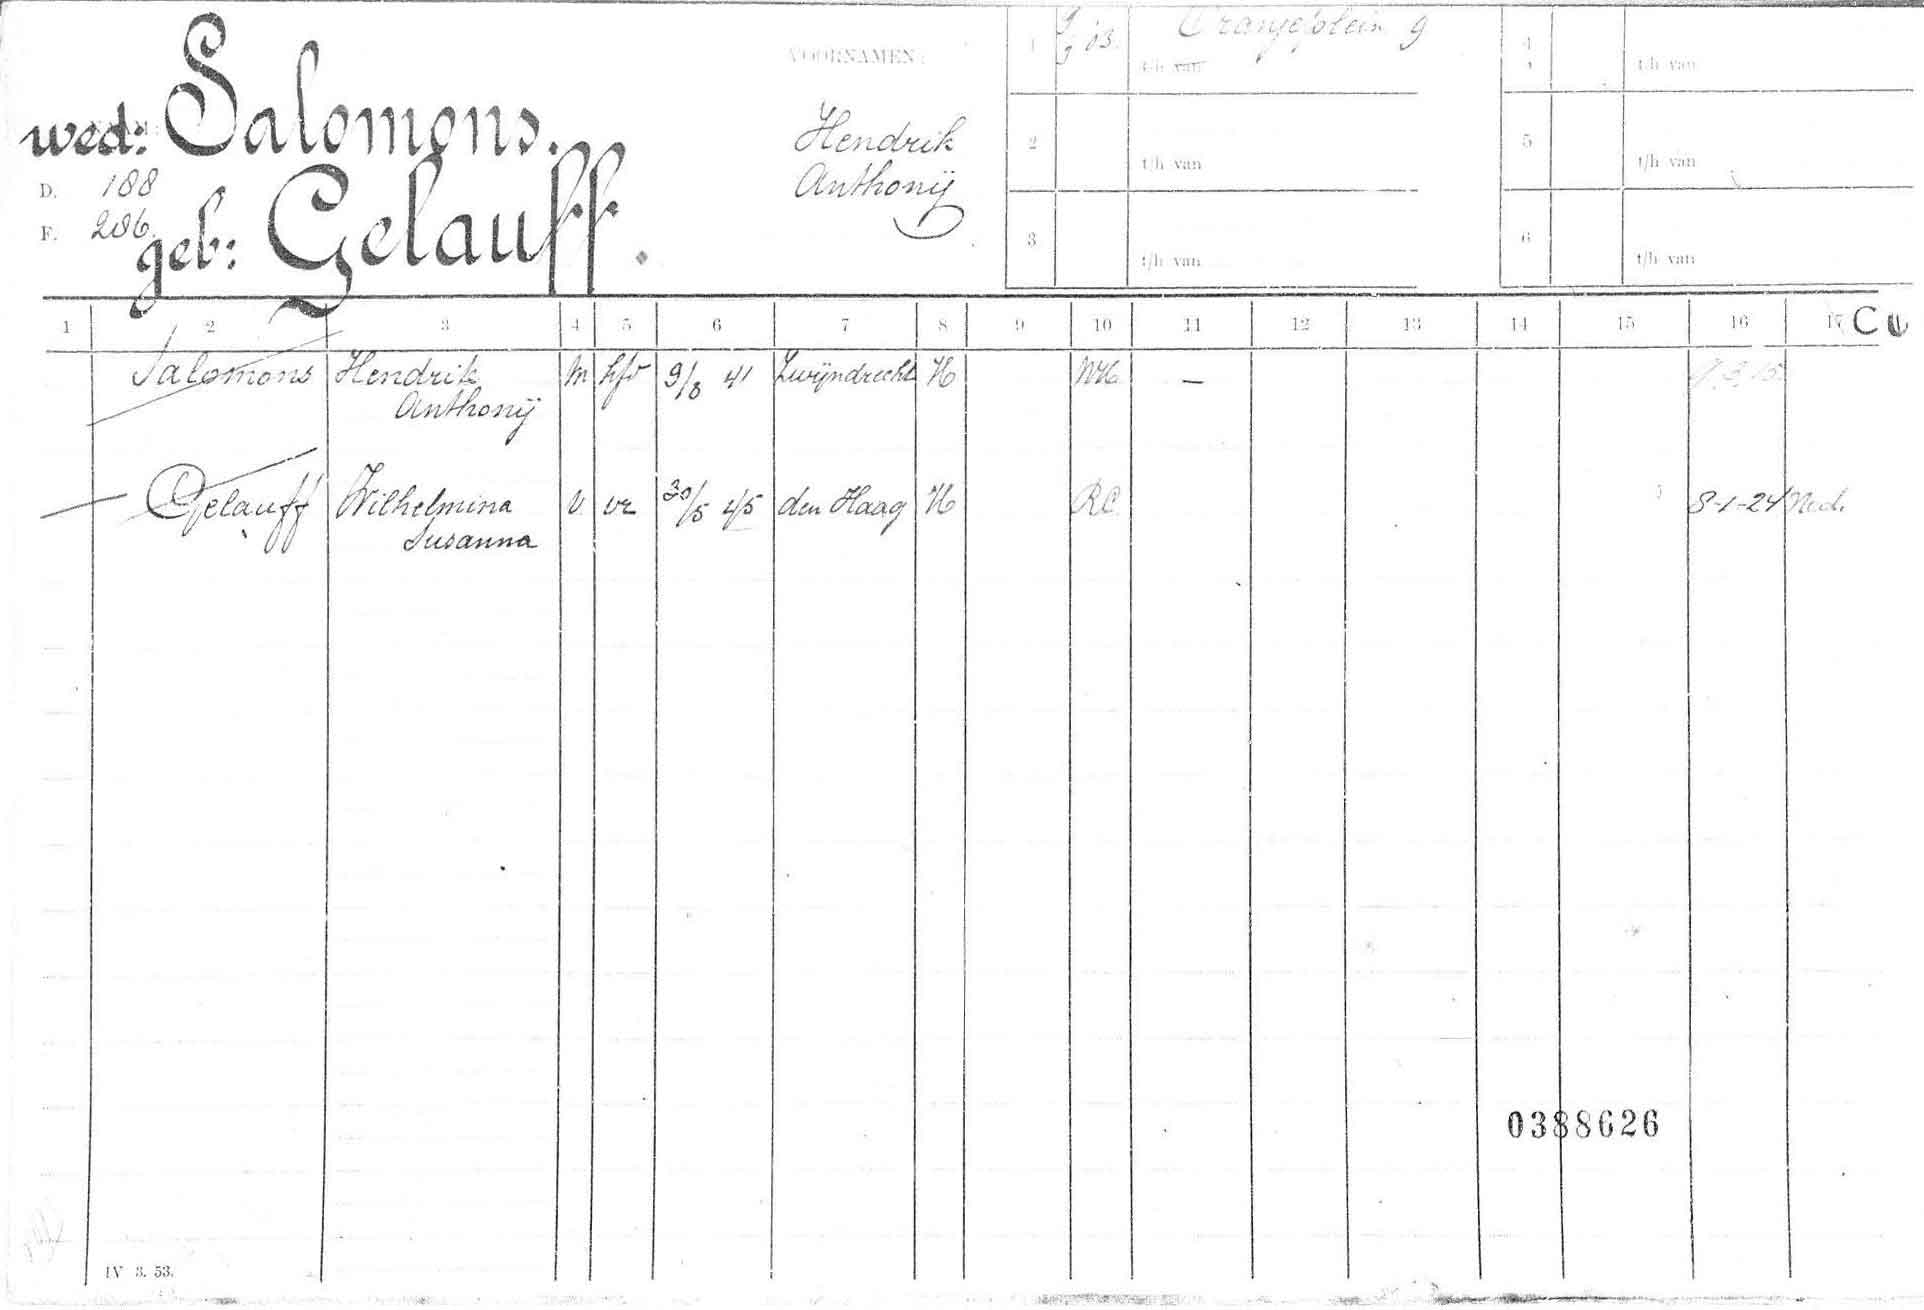 wed: Salomons.
D. 188
F. 286.
geb: Gelauff.
VOORNAMEN:
Hendrik
Anthonij
1 03. Oranjeplein 9
t/h van
2
t/h van
3
t/h van
4
t/h van
5
t/h van
6
t/h van
1 2 3 4 5 6 7 8 9 10 11 12 13 14 15 16 17 C
Salomons Hendrik M hfd 9/8 41 Zwijndrecht H NH. —
Anthonij
Gelauff Wilhelmina V. vr 30/5 45 den Haag H R.C. 8-1-24 Ned.
Susanna
0388626
IV 3. 53.